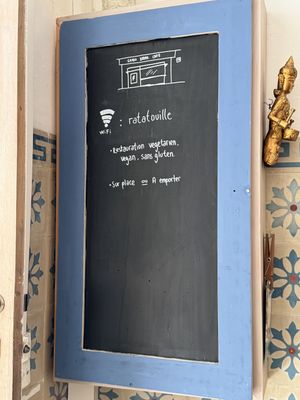 WiFi : ratatouille
• Restauration vegetarien,
vegan, sans gluten.
• Sur place ou A emporter